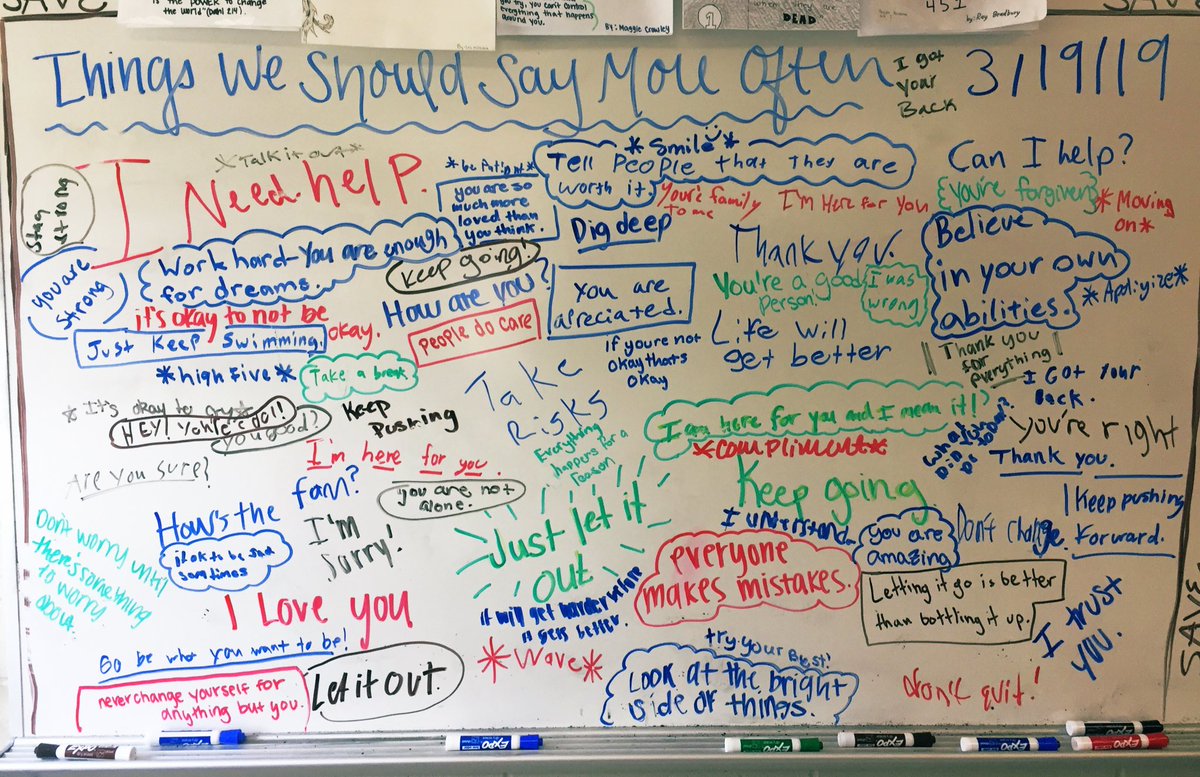 SAVE
is the power to change
the world" (Dahl 214).
you try, you can't control
everything that happens
around you.
By: Maggie Crowley
1
DEAD
451
by: Ray Bradbury
SAVE
Things We Should Say More Often
I got
your
Back
3/19/19
Stay
strong
*Talk it out*
I Need help.
*be Patient*
you are so
much more
loved than
you think.
*Smile*
Tell People that they are
worth it
You're family
to me
I'm Here for You
Can I help?
{You're forgiven}
*Moving
on*
you are
strong
Work hard-You are enough
for dreams.
Keep going!
Dig deep
Thank you.
Believe
in your own
abilities.
*Apoligize*
it's okay to not be
okay.
How are you?
You are
apreciated.
You're a good
person!
I was
wrong
Just Keep Swimming.
People do care
If youre not
okay thats
okay
Life will
get better
Thank you
for
everything
*high five*
Take a break
Take
Risks
I Got Your
Back.
*It's okay to cry*
HEY! You're cool!
you good?
Keep
Pushing
I am here for you and I mean it!
*compliment*
you're right
Thank you.
Are you sure?
I'm here for you.
Everything
happens for a
reason
Keep going
Keep pushing
Forward.
How's the
fam?
you are not
alone.
I'm
sorry!
Just let it
out
I understand.
you are
amazing
Don't change.
Don't worry until
there's something
to worry
about
it ok to be sad
sometimes
everyone
makes mistakes.
Letting it go is better
than bottling it up.
I trust
you.
I Love you
it will get harder before
it gets better.
Go be who you want to be!
*Wave*
try your Best!
never change yourself for
anything but you.
Let it Out.
Look at the bright
side of things.
don't quit!
SAVE
EXPO
EXPO
EXPO
EXPO
EXPO
EXPO
EXPO
EXPO